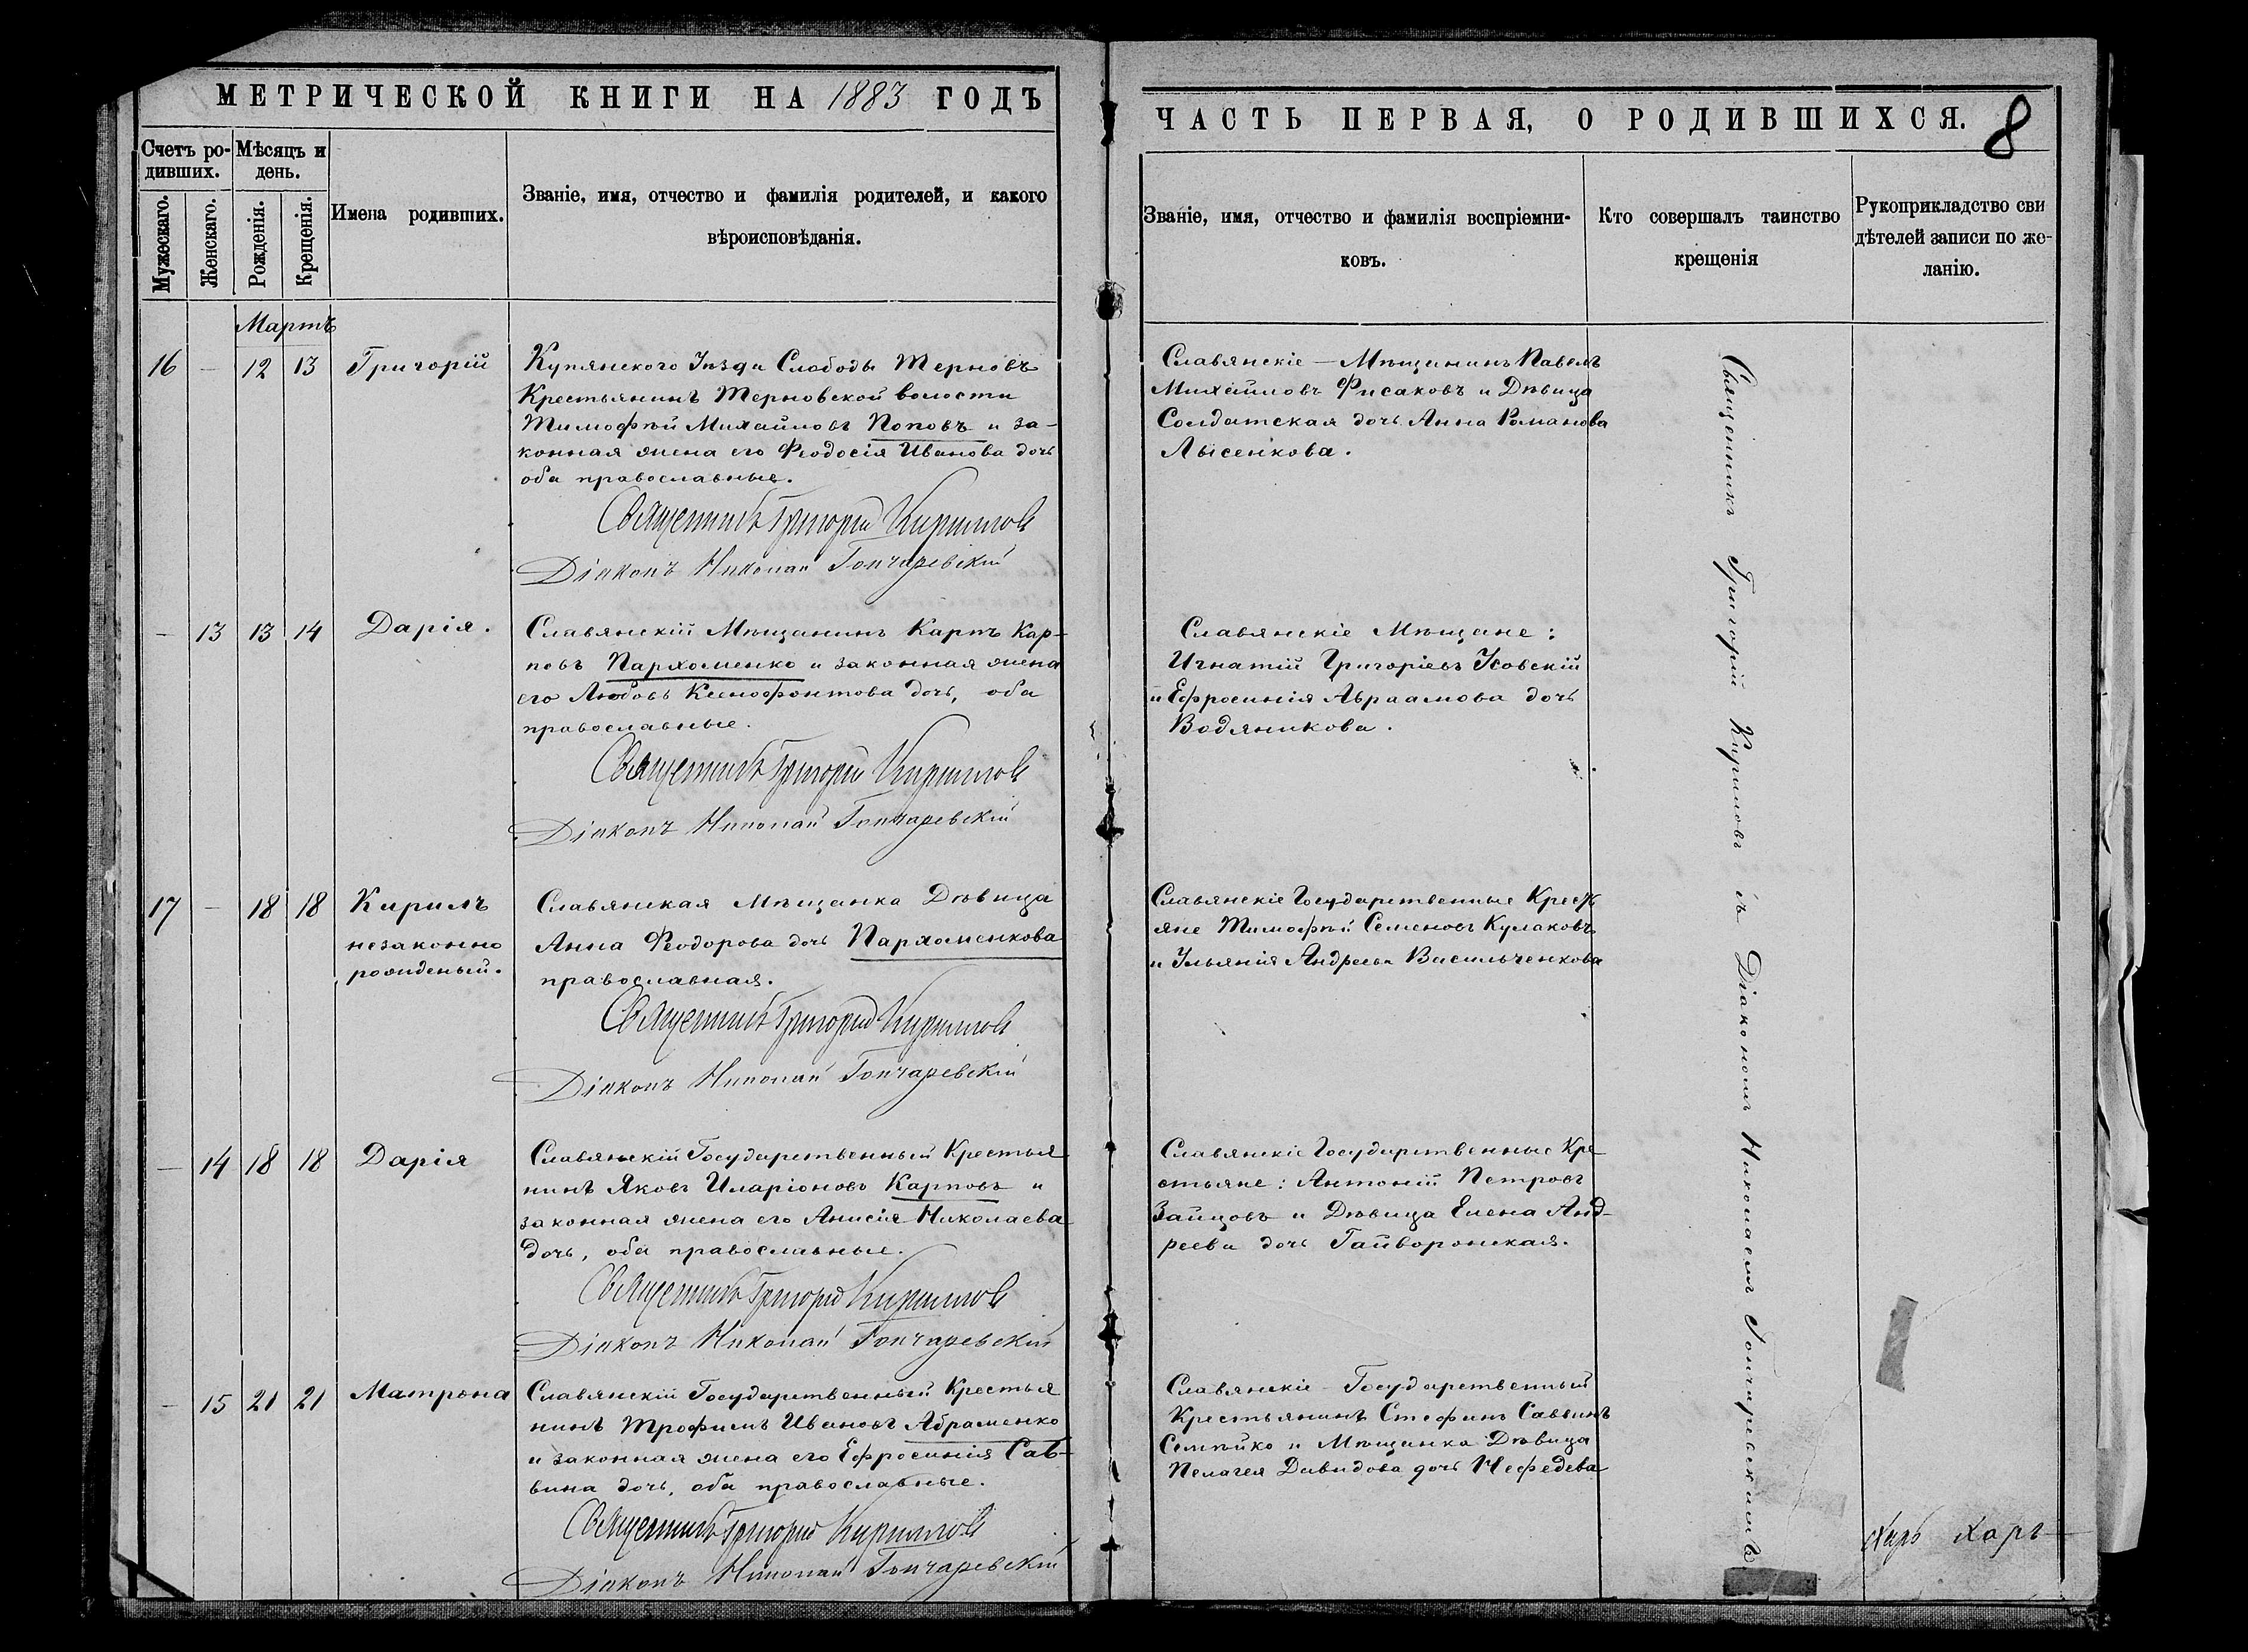 МЕТРИЧЕСКОЙ КНИГИ НА 1883 ГОДЪ
Счетъ ро-
дившихъ.
Мѣсяцъ и
день.
Мужескаго.
Женскаго.
Рожденія.
Крещенія.
Имена родившихъ.
Званіе, имя, отчество и фамилія родителей, и какого
вѣроисповѣданія.
Мартъ
16 — 12 13 Григорій
Купянскаго Уѣзда Слободы Терновъ
Крестьянинъ Терновской волости
Тимофѣй Михайловъ Поповъ и за-
конная жена его Феодосія Иванова дочь
оба православные.
Священникъ Григорій Кириловъ
Діаконъ Николай Гончаревскій
— 13 13 14 Дарія.
Славянскій Мѣщанинъ Карпъ Кар-
повъ Пархоменко и законная жена
его Любовь Ксенофонтова дочь, оба
православные.
Священникъ Григорій Кириловъ
Діаконъ Николай Гончаревскій
17 — 18 18 Кирилъ
незаконно
рожденый.
Славянская Мѣщанка Дѣвица
Анна Феодорова дочь Пархоменкова
православная.
Священникъ Григорій Кириловъ
Діаконъ Николай Гончаревскій
— 14 18 18 Дарія
Славянскій Государственный Крестья
нинъ Яковъ Иларіоновъ Карповъ и
законная жена его Анисія Николаева
дочь, оба православные.
Священникъ Григорій Кириловъ
Діаконъ Николай Гончаревскій
— 15 21 21 Матрона
Славянскій Государственный Крестья
нинъ Трофимъ Ивановъ Абраменко
и законная жена его Ефросинія Сав-
вина дочь, оба православные.
Священникъ Григорій Кириловъ
Діаконъ Николай Гончаревскій
ЧАСТЬ ПЕРВАЯ, О РОДИВШИХСЯ. 8
Званіе, имя, отчество и фамилія воспріемни-
ковъ.
Кто совершалъ таинство
крещенія
Рукоприкладство сви
дѣтелей записи по же-
ланію.
Славянскіе — Мѣщанинъ Павелъ
Михайловъ Фисаковъ и Дѣвица
Солдатская дочь Анна Романова
Лысенкова.
Славянскіе Мѣщане:
Игнатій Григоріевъ Усовскій
и Ефросинія Авраамова дочь
Водяникова.
Славянскіе Государственные Кресть
яне Тимофѣй Семеновъ Кулаковъ
и Ульянія Андреева Васильченкова
Славянскіе Государственные Кре
стьяне: Антоній Петровъ
Зайцовъ и Дѣвица Елена Анд-
реева дочь Гайворонская.
Славянскіе — Государственный
Крестьянинъ Стефанъ Саввинъ
Семѣйко и Мѣщанка Дѣвица
Пелагея Давидова дочь Нефедева
Священникъ Григорій Кириловъ съ Діакономъ Николаемъ Гончаревскимъ